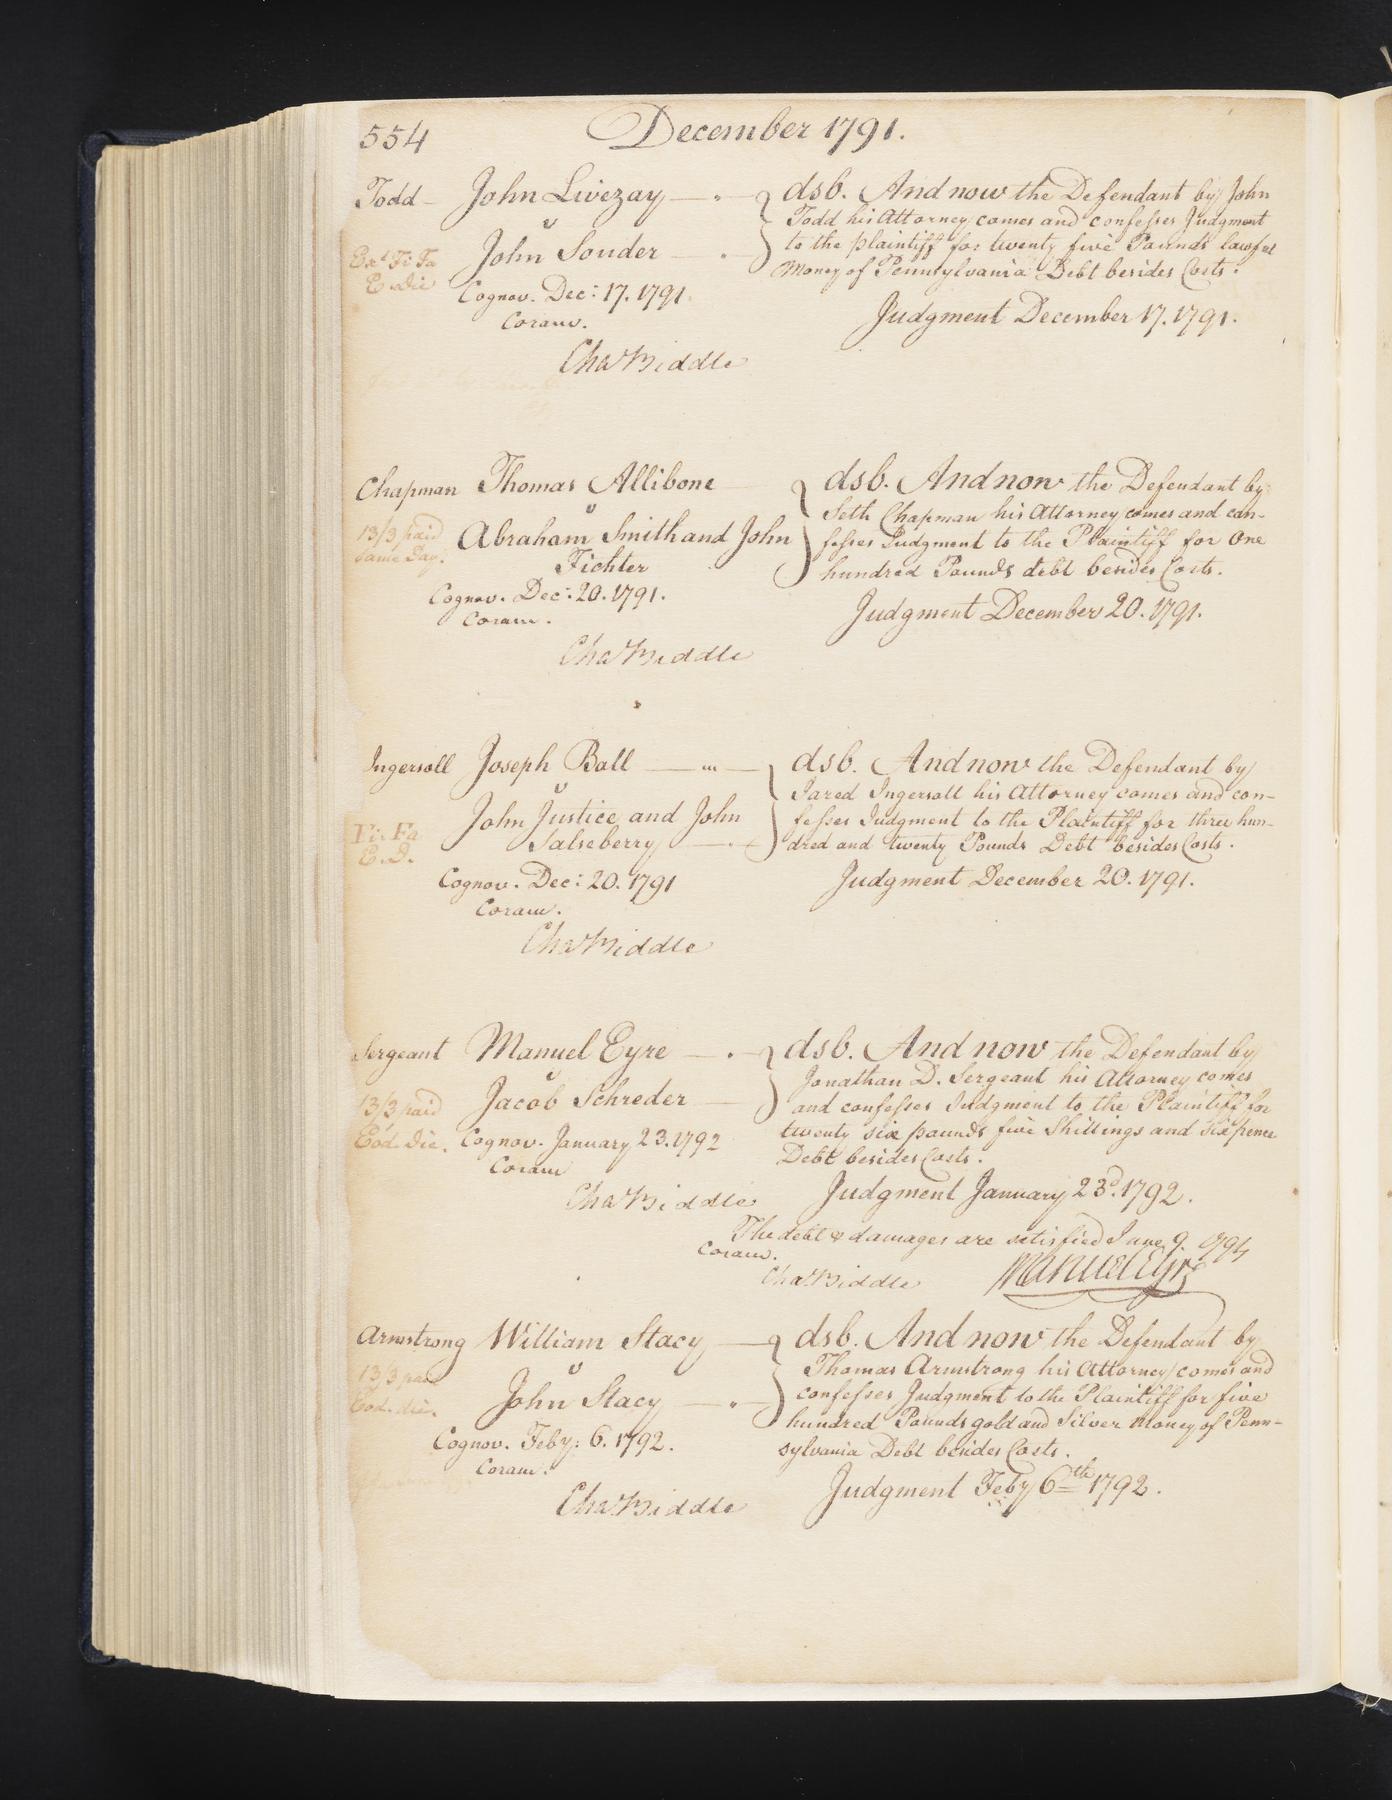 554
December 1791.
Todd - John Livezay
v
John Souder
Ext Fi Fa
E. Die
Cognov. Dec: 17. 1791.
Coram.
Cha Biddle
dsb. And now the Defendant by John
Todd his Attorney comes and confesses Judgment
to the plaintiff for twenty five Pounds lawful
Money of Pennsylvania Debt besides Costs.
Judgment December 17. 1791.
Chapman Thomas Allibone
v
13/3 paid
same Day.
Abraham Smith and John
Fichter
Cognov. Dec: 20. 1791.
Coram.
Cha Biddle
dsb. And now the Defendant by
Seth Chapman his Attorney comes and con-
fesses Judgment to the Plaintiff for One
hundred Pounds debt besides Costs.
Judgment December 20. 1791.
Ingersoll Joseph Ball
v
John Justice and John
Salseberry
Fi: Fa
E. D.
Cognov. Dec: 20. 1791
Coram.
Cha Biddle
dsb. And now the Defendant by
Jared Ingersoll his Attorney comes and con-
fesses Judgment to the Plaintiff for three hun-
dred and twenty Pounds Debt besides Costs.
Judgment December 20. 1791.
Sergeant Manuel Eyre
v
Jacob Schreder
13/3 paid
Eod. Die.
Cognov. January 23. 1792
Coram
Cha Biddle
dsb. And now the Defendant by
Jonathan D. Sergeant his Attorney comes
and confesses Judgment to the Plaintiff for
twenty six pounds five Shillings and Sixpence
Debt besides Costs.
Judgment January 23d. 1792.
The debt & damages are satisfied June 9. 1794
Coram.
Cha Biddle
Manuel Eyre
Armstrong William Stacy
v
John Stacy
13/3 paid
Eod. die.
Cognov. Feby: 6. 1792.
Coram.
Cha Biddle
dsb. And now the Defendant by
Thomas Armstrong his Attorney comes and
confesses Judgment to the Plaintiff for five
hundred Pounds gold and Silver Money of Penn-
sylvania Debt besides Costs.
Judgment Feby 6th 1792.